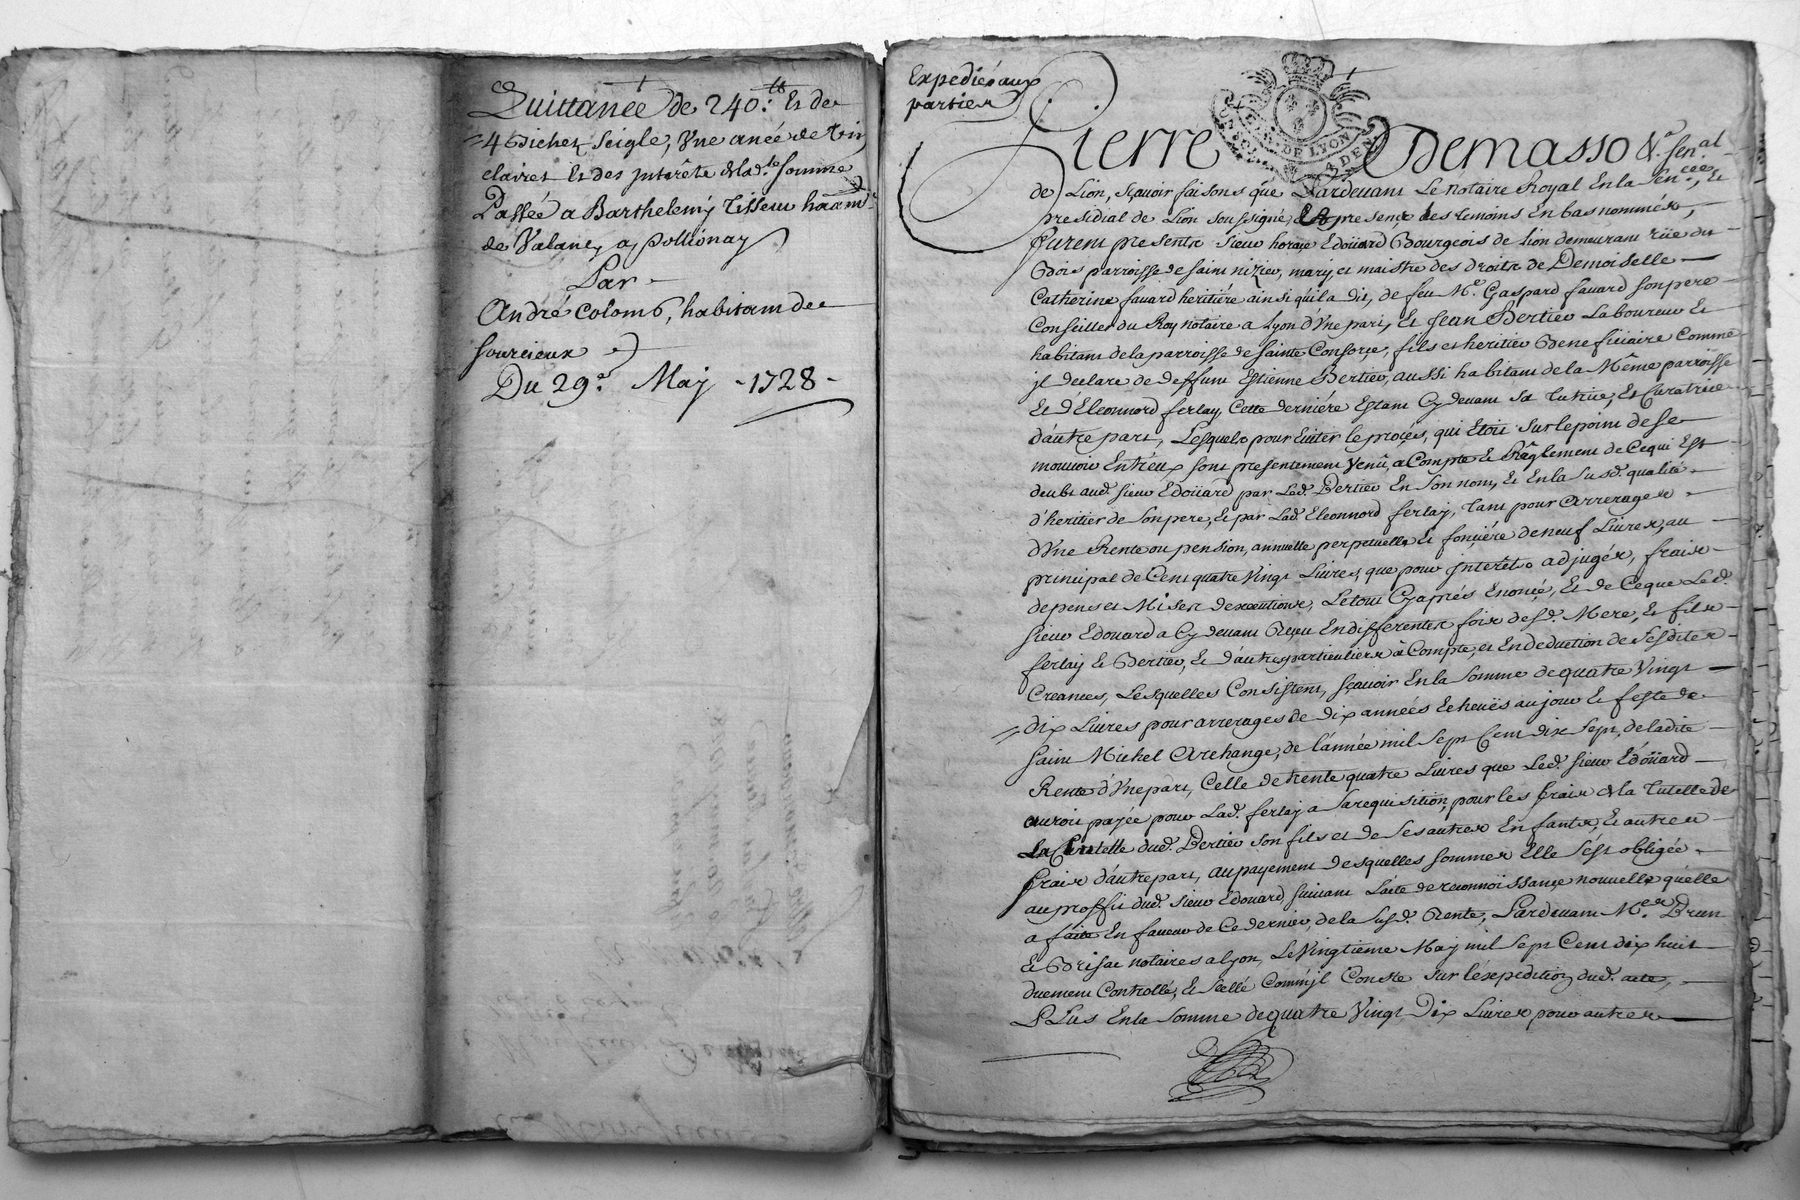 Quittance de 240.ᵗᵗ Et de
4 Bichez Seigle, Une anée de Vin
clairet Et des jnterêts de lad.ᵗᵉ somme
Passée a Barthelemÿ Tisseur
de Valancy a, pollionay
Par
André Colomb, habitant de
sourcieux
Du 29.ᵉ Maÿ -1728-
Expedié aux
parties
Pierre Demasso
de Lion, sçavoir faisons que Pardevant Le notaire Royal En la Sen.ᶜᵉᵉ, Et
presidial de Lion soussigné, Et presence des temoins En bas nommés,
furent presents sieur horace Edoüard Bourgeois de Lion demeurant rüe du
Bois parroisse de saint nizier, mary, et maistre des droits de Demoiselle
Catherine favard heritiére ainsi qu'il a dit, de feu M.ᵉ Gaspard favard son pere
Conseiller du Roy notaire a Lyon d'Une part, Et Jean Bertier Laboureur Et
habitant de la parroisse de sainte Consorce, fils et heritier Beneficiaire Comme
jl declare de deffunt Estienne Bertier, aussi habitant de la Même parroisse
Et d'Eleonnord ferlay, Cette derniére Estant Cy devant sa tutrice, Et Curatrice
d'autre part, Lesquels pour Eviter le procés, qui Etoit sur le point de se
mouvoir Entr'eux sont presentement Venû, a Compte Et Réglement de Ce qui Est
deubt aud. sieur Edoüard par Led. Bertier En son nom, Et En la susd. qualité
d'heritier de son pere, Et par Lad. Eleonnord ferlaÿ, tant pour arrerages
d'Une Rente ou pension, annuelle perpetuelle Et fonciére de neuf Livres, au
principal de Cent quatre Vingt Livres, que pour jnterêts adjugés, frais
depens et Mises d'execution, Le tout Cy aprés Enoncé, Et de Ce que Led.
sieur Edoüard a Cy devant Reçeu En differentes fois desd. Mere, Et fils
ferlaÿ Et Bertier, Et d'autres particuliers à Compte, et En deduction de sesdites
Creances, Lesquelles Consistent, sçavoir En la somme de quatre Vingt
dix Livres pour arrerages de dix années Echeuës au jour Et feste de
saint Michel Archange, de l'année mil sept Cent dix sept, de ladite
Rente d'Une part, Celle de trente quatre Livres que Led. sieur Edoüard
auroit payée pour Lad. ferlaÿ a sa requisition, pour les frais de la tutelle de
La tutelle dud. Bertier son fils et de ses autres Enfants, Et autres
frais d'autre part, au payement desquelles sommes Elle s'est obligée
au proffit dud. sieur Edoüard suivant L'acte de reconnoissance nouvelle qu'elle
a faite En faveur de Ce dernier, de la susd. Rente, Pardevant M.ᵉʳˢ Brun
Et Brisac notaires a Lyon, Le Vingtieme Maÿ mil sept Cent dix huit
duement Controllé, Et scellé Comm'jl Conste sur l'expedition dud. acte,
PLus En la somme de quatre Vingt Dix Livres pour autres